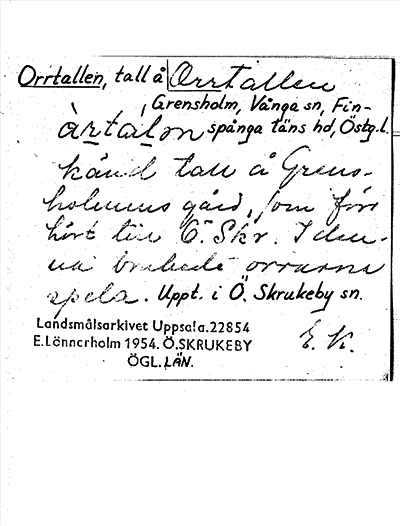 Orrtallen, tall å Orrtallen
Grensholm, Vånga sn, Fin-
àrtálon spånga läns hd, Östg.l.
känd tall å Grens-
holmens gård, som förr
hört till Ö. Skr. I den-
na brukade orrarna
spela. Uppt. i Ö. Skrukeby sn.
Landsmålsarkivet Uppsala. 22854
E. Lönnerholm 1954. Ö. SKRUKEBY
ÖGL. LÄN.
E. K.